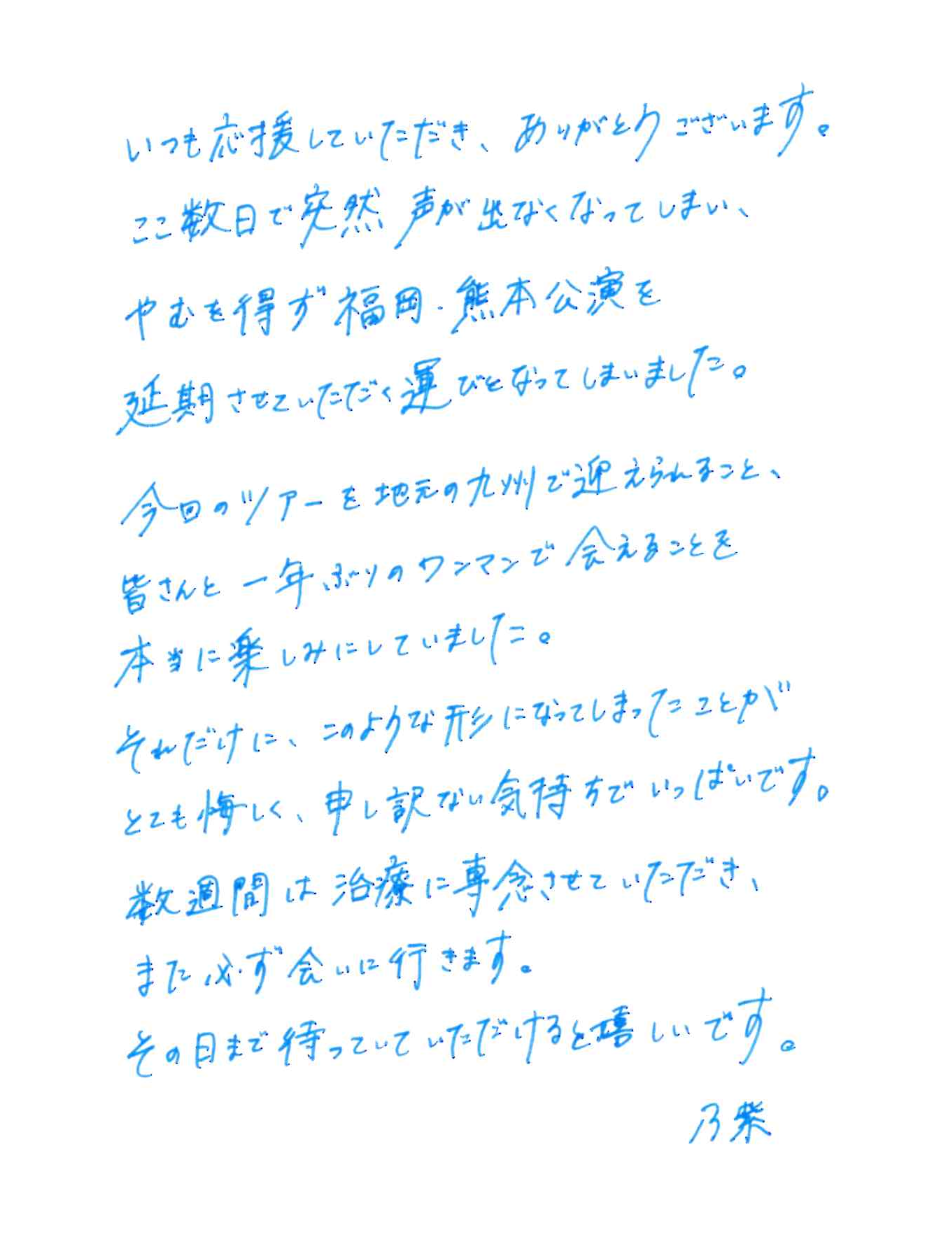 いつも応援していただき、ありがとうございます。
ここ数日で突然 声が出なくなってしまい、
やむを得ず福岡・熊本公演を
延期させていただく運びとなってしまいました。
今回のツアーを地元の九州で迎えられること、
皆さんと一年ぶりのワンマンで会えることを
本当に楽しみにしていました。
それだけに、このような形になってしまったことが
とても悔しく、申し訳ない気持ちでいっぱいです。
数週間は治療に専念させていただき、
また必ず会いに行きます。
その日まで待っていていただけると嬉しいです。
乃紫